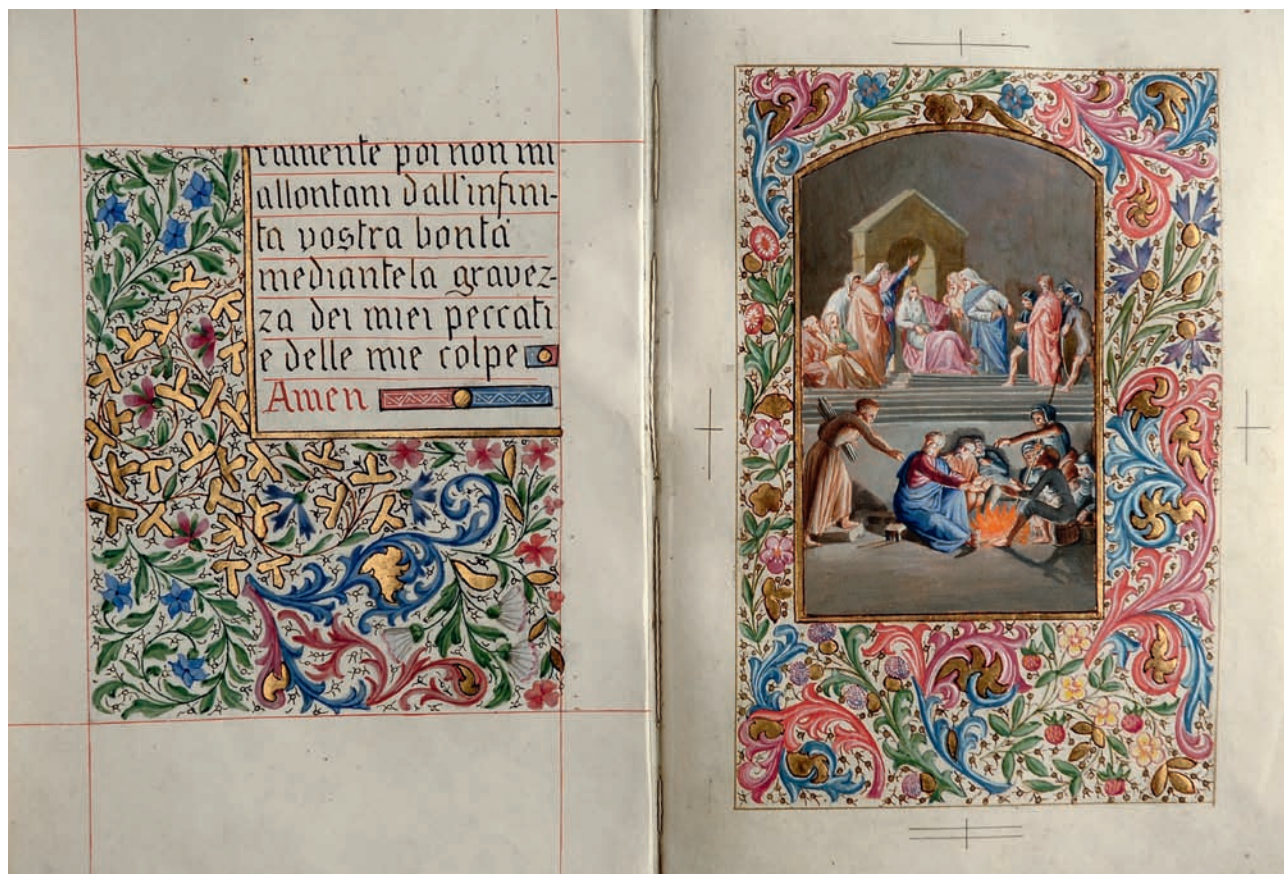 ramente poi non mi
allontani dall'infini-
ta vostra bontà
mediante la gravez-
za dei miei peccati
e delle mie colpe
Amen